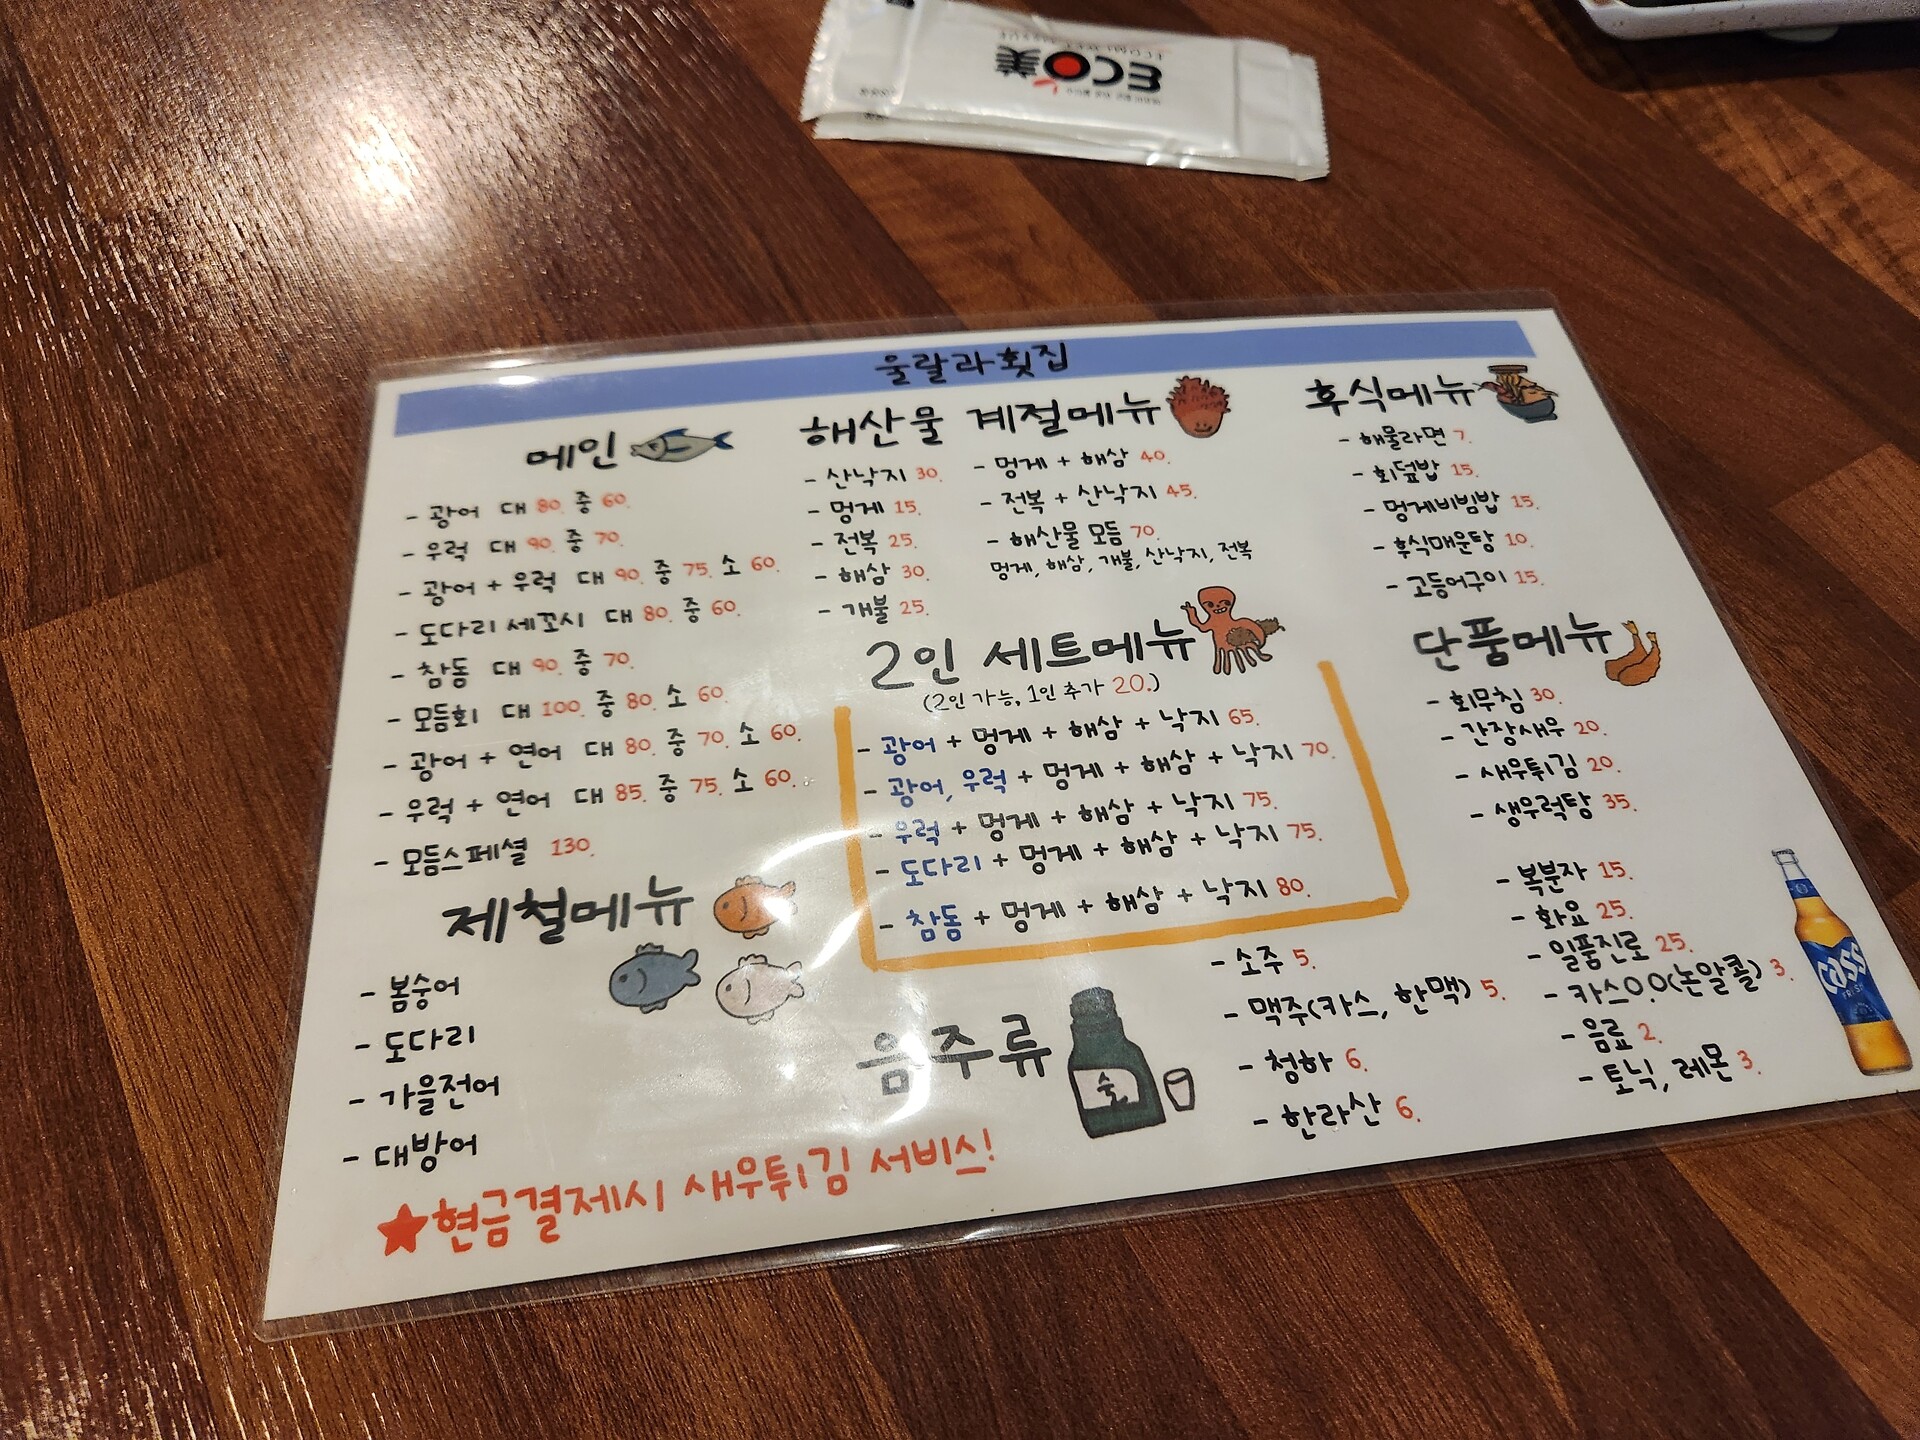 ECO美
울랄라횟집
메인
- 광어 대 80. 중 60.
- 우럭 대 90. 중 70.
- 광어 + 우럭 대 90. 중 75. 소 60.
- 도다리 세꼬시 대 80. 중 60.
- 참돔 대 90. 중 70.
- 모듬회 대 100. 중 80. 소 60.
- 광어 + 연어 대 80. 중 70. 소 60.
- 우럭 + 연어 대 85. 중 75. 소 60.
- 모듬스페셜 130.
제철메뉴
- 봄숭어
- 도다리
- 가을전어
- 대방어
★현금결제시 새우튀김 서비스!
해산물 계절메뉴
- 산낙지 30.
- 멍게 15.
- 전복 25.
- 해삼 30.
- 개불 25.
- 멍게 + 해삼 40.
- 전복 + 산낙지 45.
- 해산물 모듬 70.
멍게, 해삼, 개불, 산낙지, 전복
2인 세트메뉴
(2인 가능, 1인 추가 20.)
- 광어 + 멍게 + 해삼 + 낙지 65.
- 광어, 우럭 + 멍게 + 해삼 + 낙지 70.
- 우럭 + 멍게 + 해삼 + 낙지 75.
- 도다리 + 멍게 + 해삼 + 낙지 75.
- 참돔 + 멍게 + 해삼 + 낙지 80.
후식메뉴
- 해물라면 7.
- 회덮밥 15.
- 멍게비빔밥 15.
- 후식매운탕 10.
- 고등어구이 15.
단품메뉴
- 회무침 30.
- 간장새우 20.
- 새우튀김 20.
- 생우럭탕 35.
음주류
술
- 소주 5.
- 맥주(카스, 한맥) 5.
- 청하 6.
- 한라산 6.
- 복분자 15.
- 화요 25.
- 일품진로 25.
- 카스0.0(논알콜) 3.
- 음료 2.
- 토닉, 레몬 3.
Cass